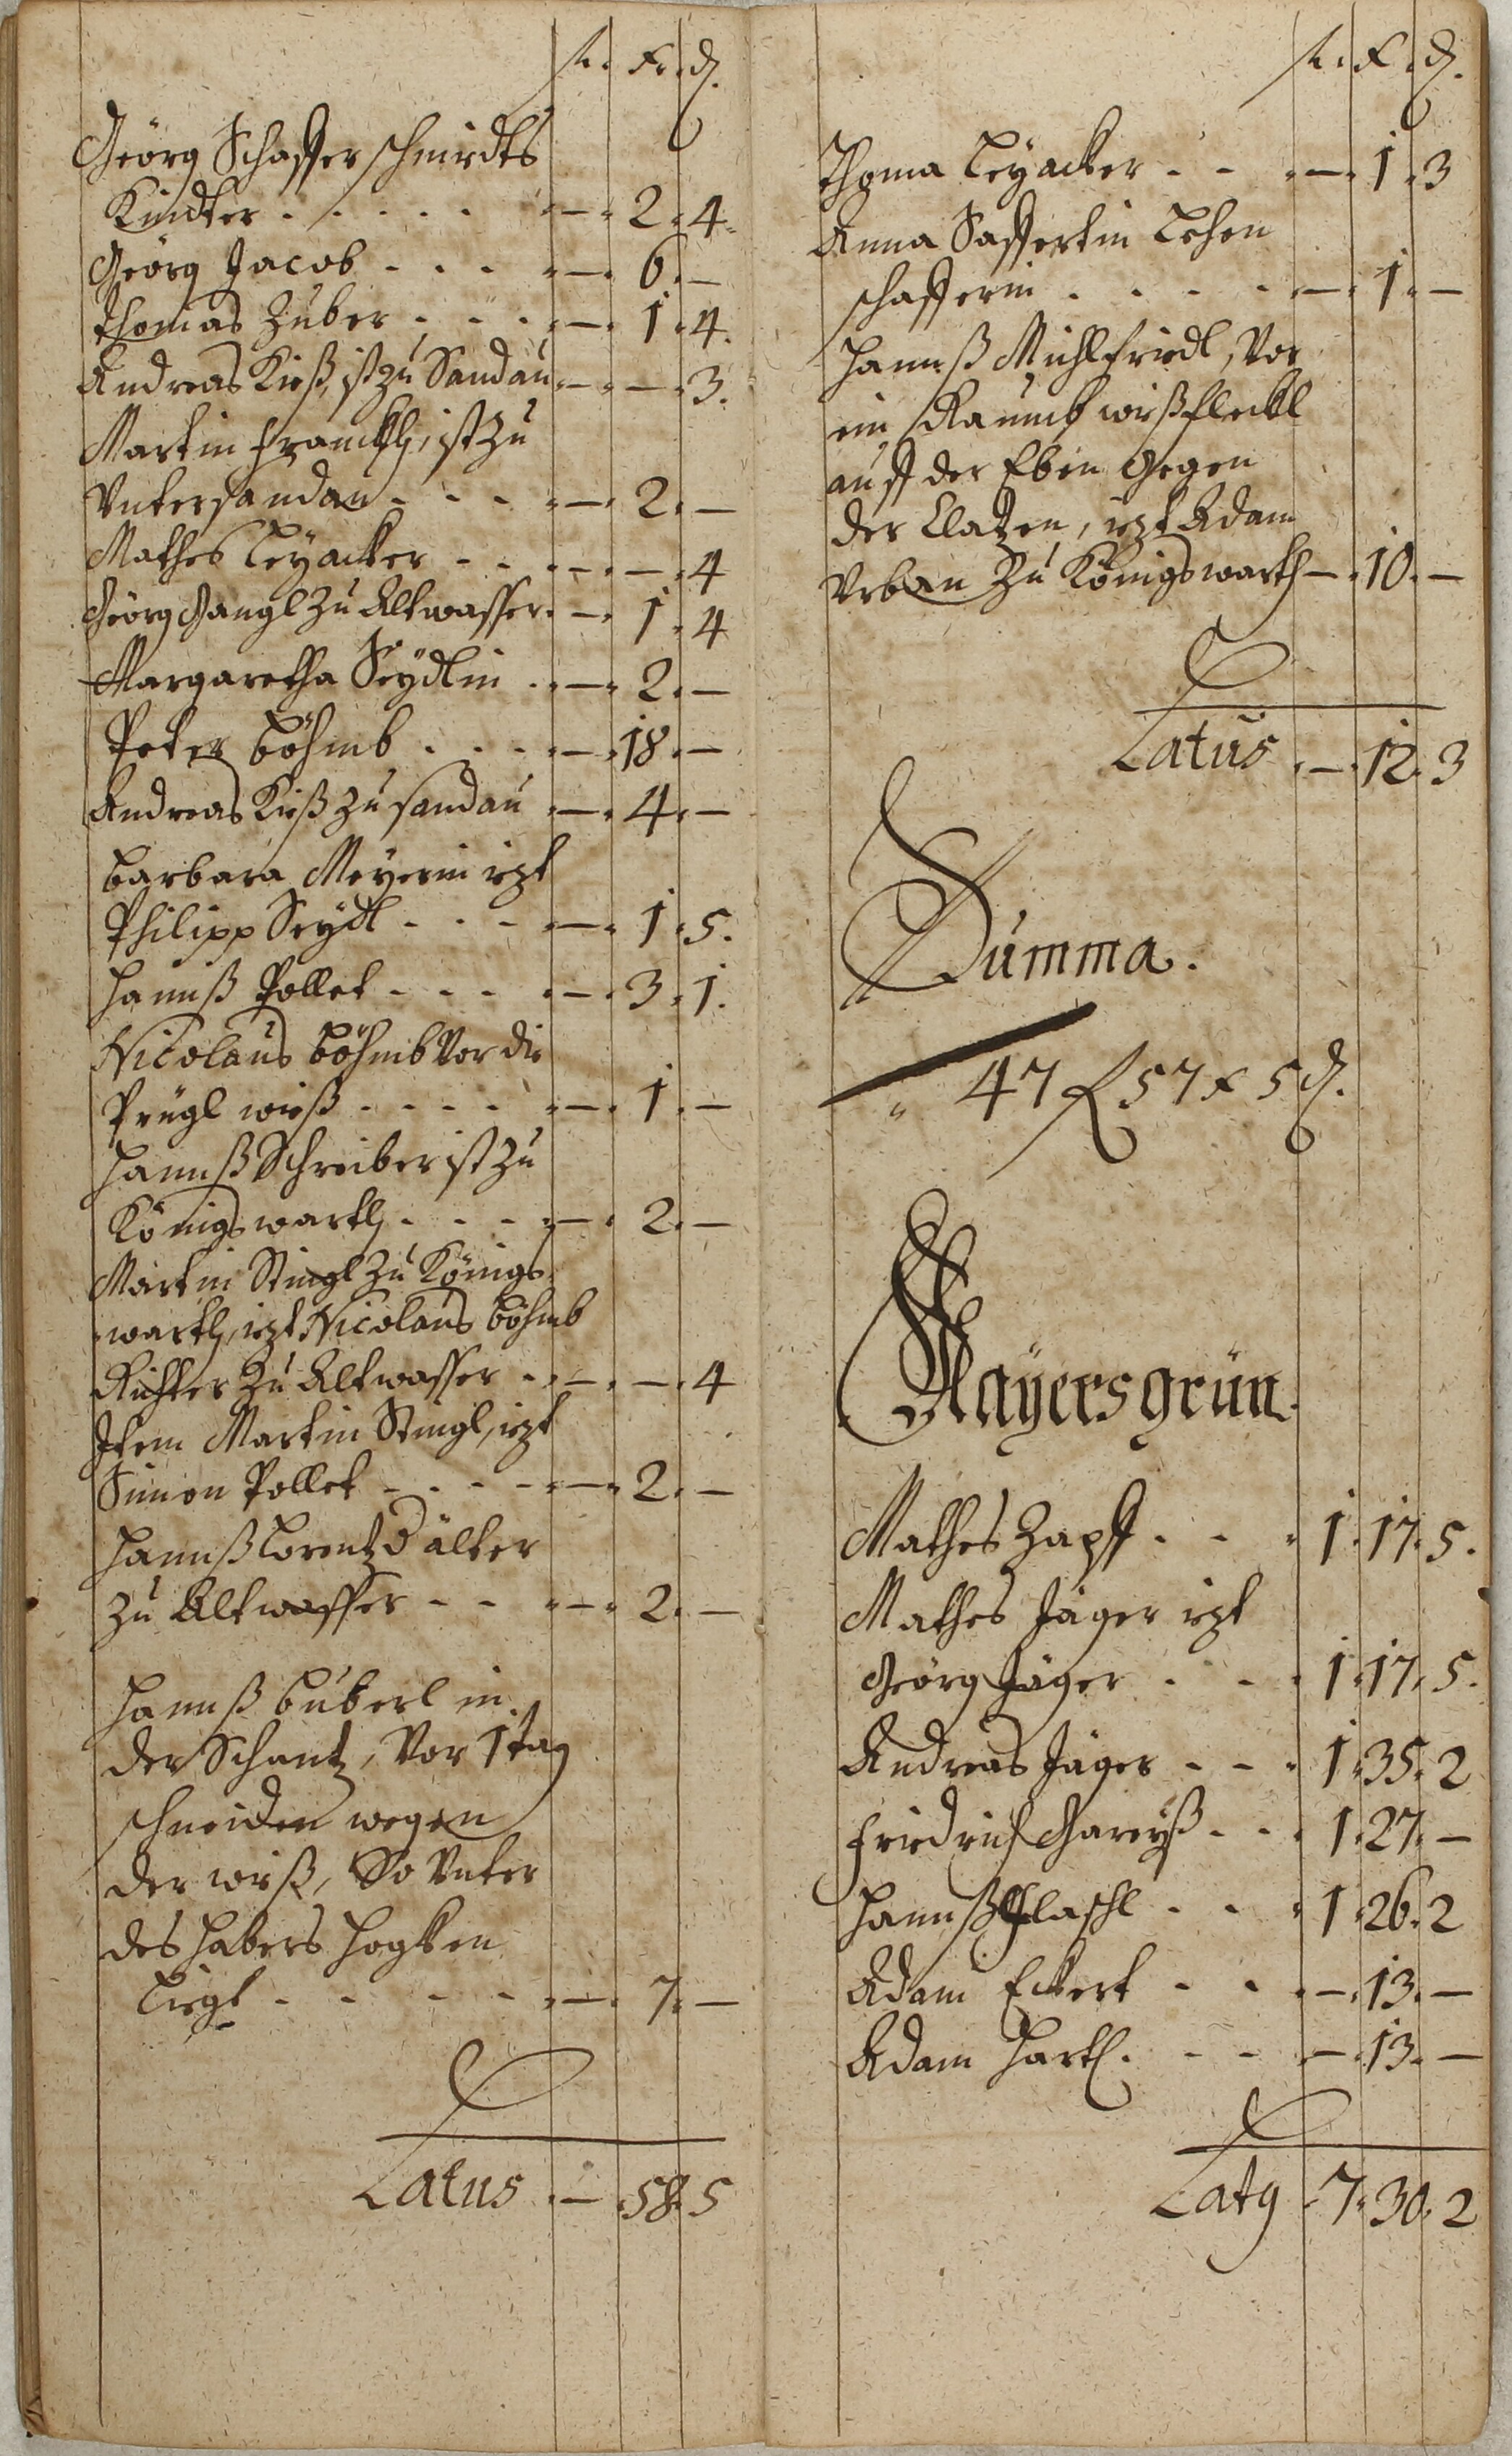 fl. xr. ₰.
Geörg Schaffer schmirdts
Kindter . . . . . — 2 4
Geörg Jacob . . . — 6 —
Thomas Zuber . . . — 1 4.
Andreas Kieß, ist zu Sandau — — 3.
Martin Franckh, ist zu
Vntersandau . . . — 2 —
Mathes Leyacker . . — — 4
Geörg Gangl zu Altwasser . — 1 4
Margaretha Seydlin . — 2 —
Peter Böhmb . . . — 18 —
Andreas Kieß zu sandau — 4 —
Barbara Meyerin iezt
Philipp Seydl . . . — 1 5.
Hannß Pollet . . . — 3 1.
Nicolaus Böhmb Vor die
Prügl wieß . . . . — 1 —
Hannß Schreiber ist zu
Königswarth . . . — 2 —
Martin Stingl zu Königs
warth, iezt Nicolaus Böhmb
Richter zu Altwasser . — — 4
Item Martin Stingl, iezt
Simon Pollet . . . . — 2 —
Hannß Lorentz d älter
zu Altwasser . . — 2 —
Hannß Buberl in
der Schantz, Vor 1 tag
schneiden wegen
der wieß, So Vnter
des Habers Hogken
Liegt . . . . . — 7 —
Latus . — 58 5
fl. xr. ₰.
Thoma Leyacker . . — 1 3
Anna Saffertin Lehen
schafferin . . . . — 1 —
Hannß Michlfriedl, Vor
ein Raumb wießfleckl
auff der Eben gegen
der Clatzen, iezt Adam
Vrban zu Königswarth — 10 —
Latus . — 12 3
Summa.
47 fl 57 xr 5 ₰.
Mayersgrün.
Mathes Zapff . . 1 17 5.
Mathes Jäger iezt
Geörg Jäger . . . 1 17 5.
Andreas Jäger . . . 1 35 2
Friedrich Gareyß . . . 1 27 —
Hannß Flaschl . . . 1 26 2
Adam Eckert . . . — 13 —
Adam Hartl . . . — 13 —
Latg 7 30 2